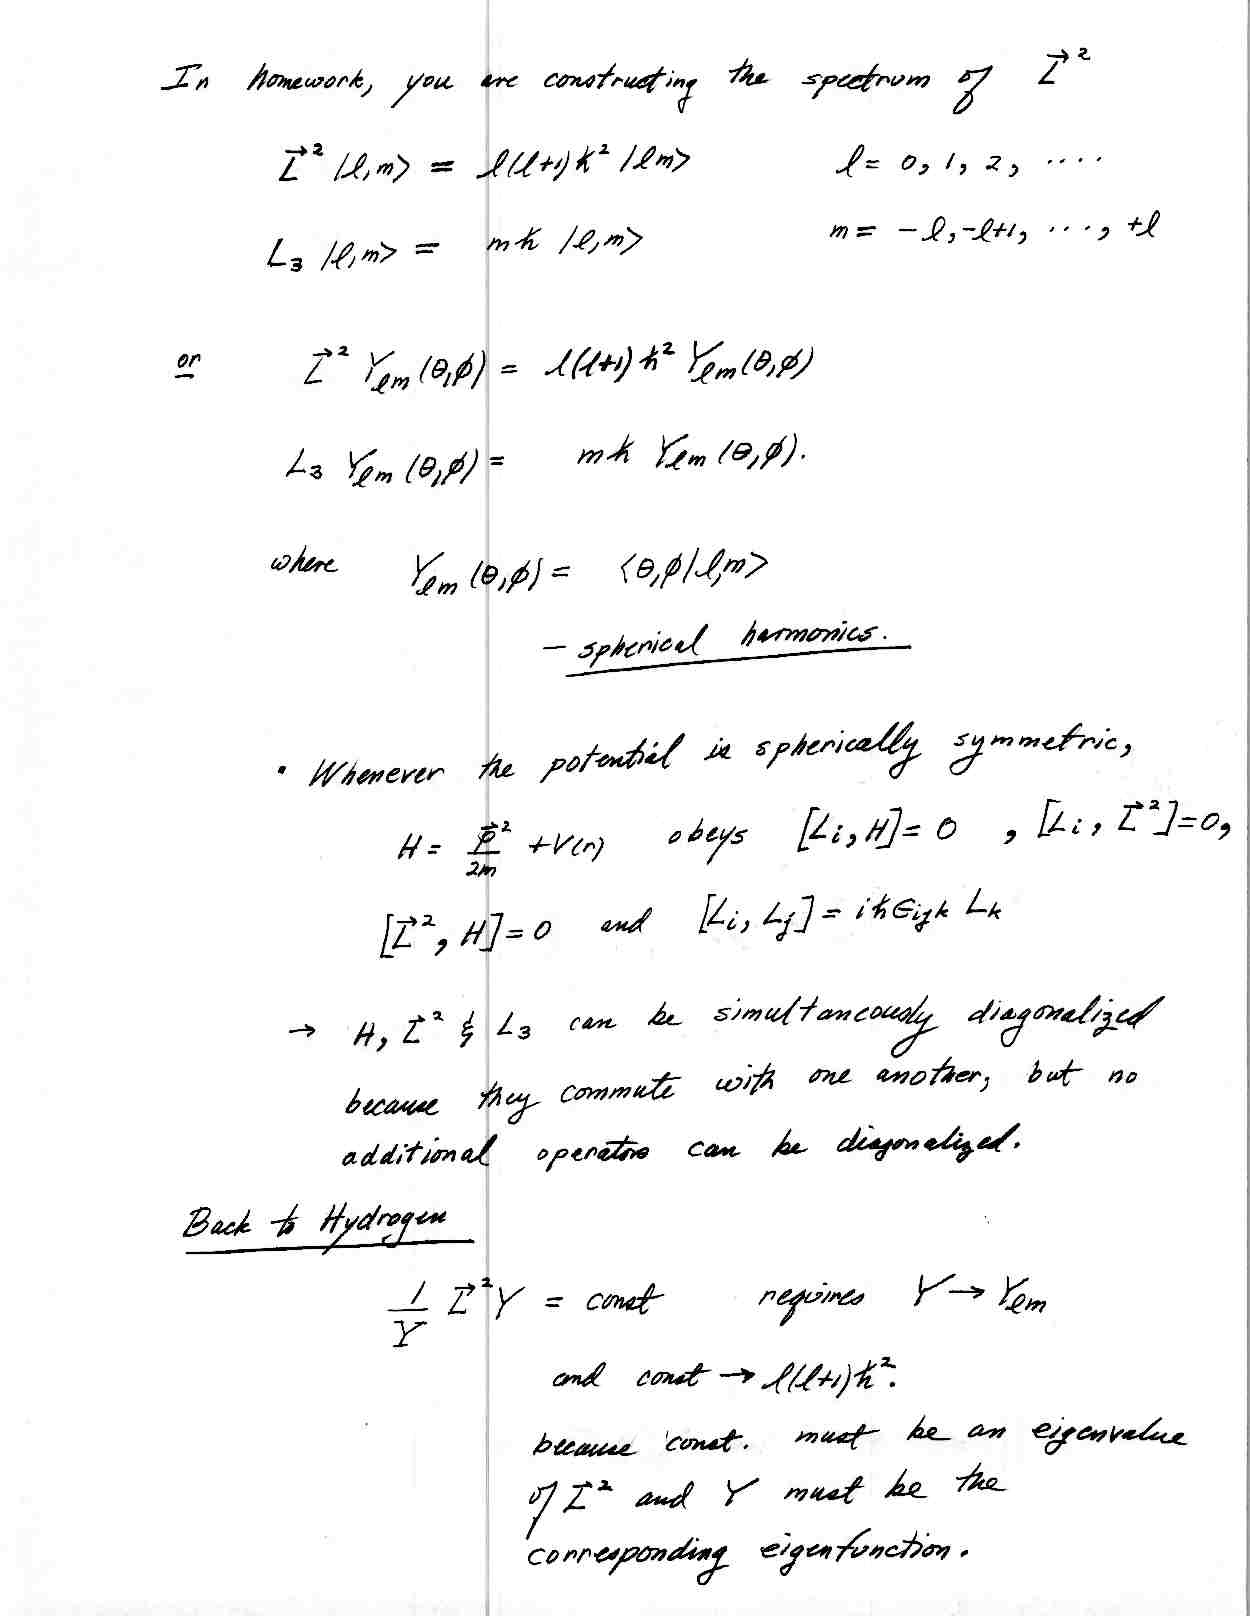 In homework, you are constructing the spectrum of L⃗²
L⃗² |l,m⟩ = l(l+1)ħ² |lm⟩ l = 0, 1, 2, ....
L₃ |l,m⟩ = mħ |l,m⟩ m = -l, -l+1, ..., +l
or L⃗² Yₗₘ(θ,ϕ) = l(l+1)ħ² Yₗₘ(θ,ϕ)
L₃ Yₗₘ(θ,ϕ) = mħ Yₗₘ(θ,ϕ).
where Yₗₘ(θ,ϕ) = ⟨θ,ϕ|l,m⟩
- spherical harmonics.
• Whenever the potential is spherically symmetric,
H = p⃗²/2m + V(r) obeys [Lᵢ, H] = 0 , [Lᵢ, L⃗²] = 0,
[L⃗², H] = 0 and [Lᵢ, Lⱼ] = iħϵᵢⱼₖ Lₖ
→ H, L⃗² & L₃ can be simultaneously diagonalized
because they commute with one another, but no
additional operators can be diagonalized.
Back to Hydrogen
1/Y L⃗² Y = const requires Y → Yₗₘ
and const → l(l+1)ħ².
because const. must be an eigenvalue
of L⃗² and Y must be the
corresponding eigenfunction.